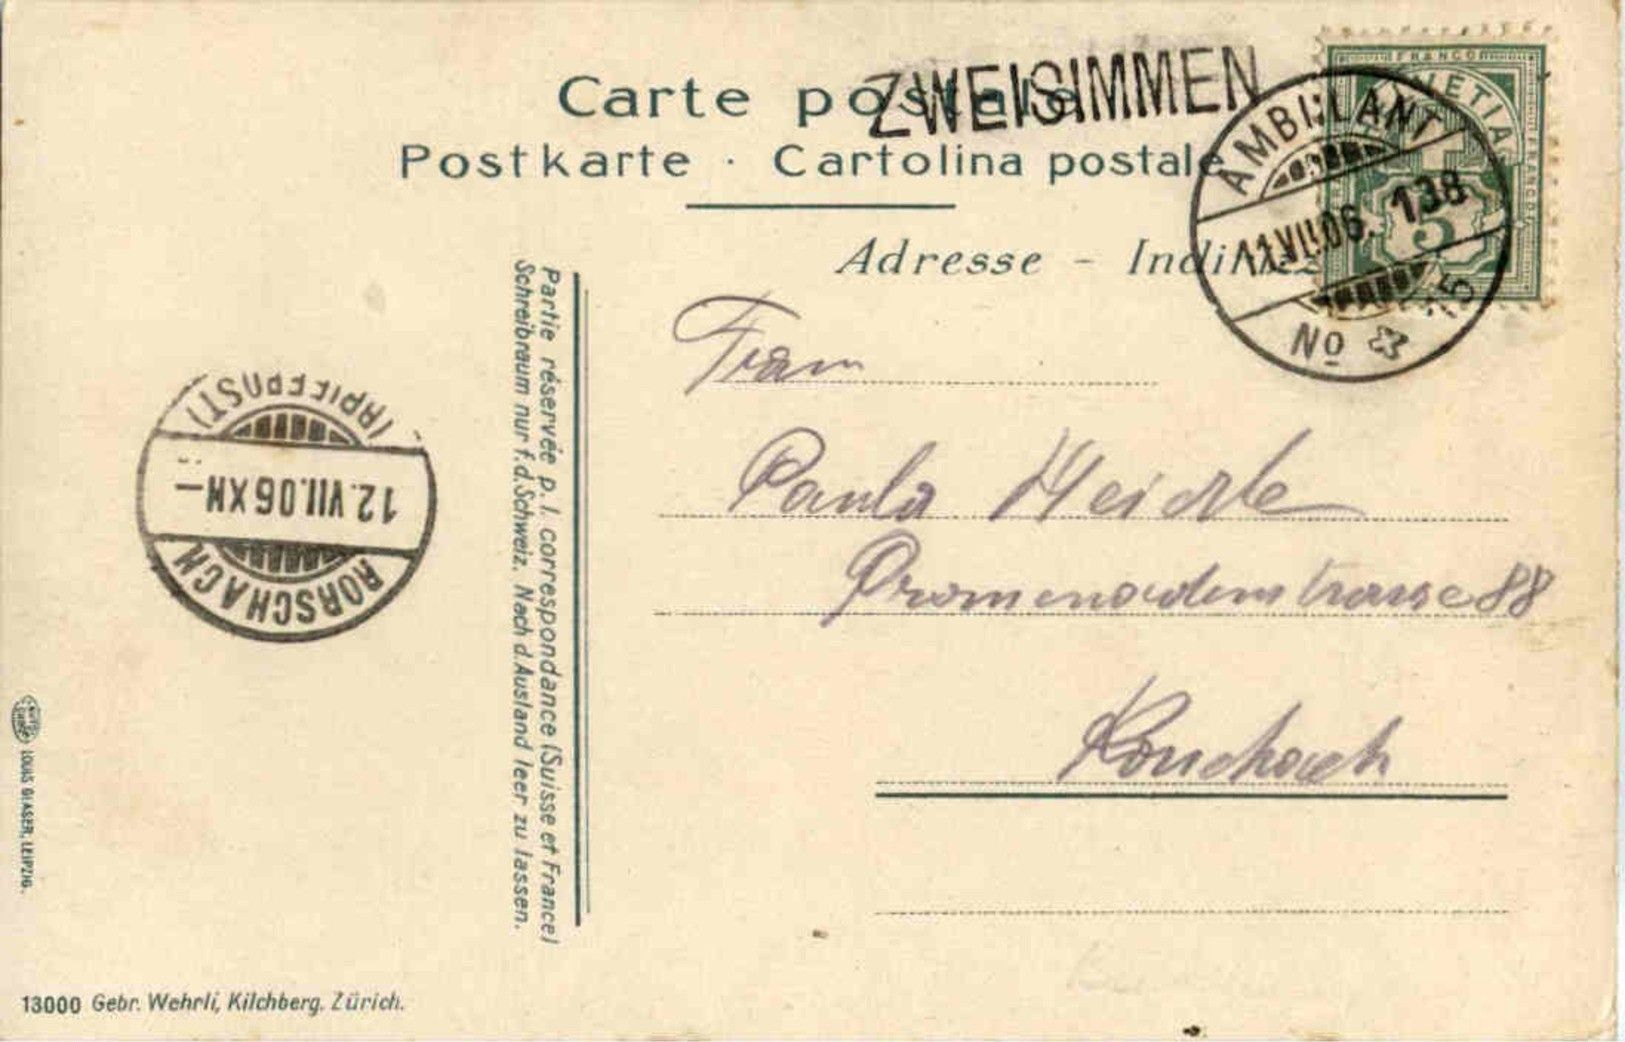 Carte postale
ZWEISIMMEN
Postkarte · Cartolina postale
Adresse -
FRANCO
HELVETIA
FRANCO
5
AMBULANT
11.VII.06. 138
No 5
Frau
Paula Heidle
Promenadenstrasse 88
Rorschach
Partie réservée p. l. correspondance (Suisse et France)
Schreibraum nur f. d. Schweiz. Nach d. Ausland leer zu lassen.
(BRIEFPOST)
12.VII.06 XII-
RORSCHACH
LOUIS GLASER, LEIPZIG.
13000 Gebr. Wehrli, Kilchberg. Zürich.